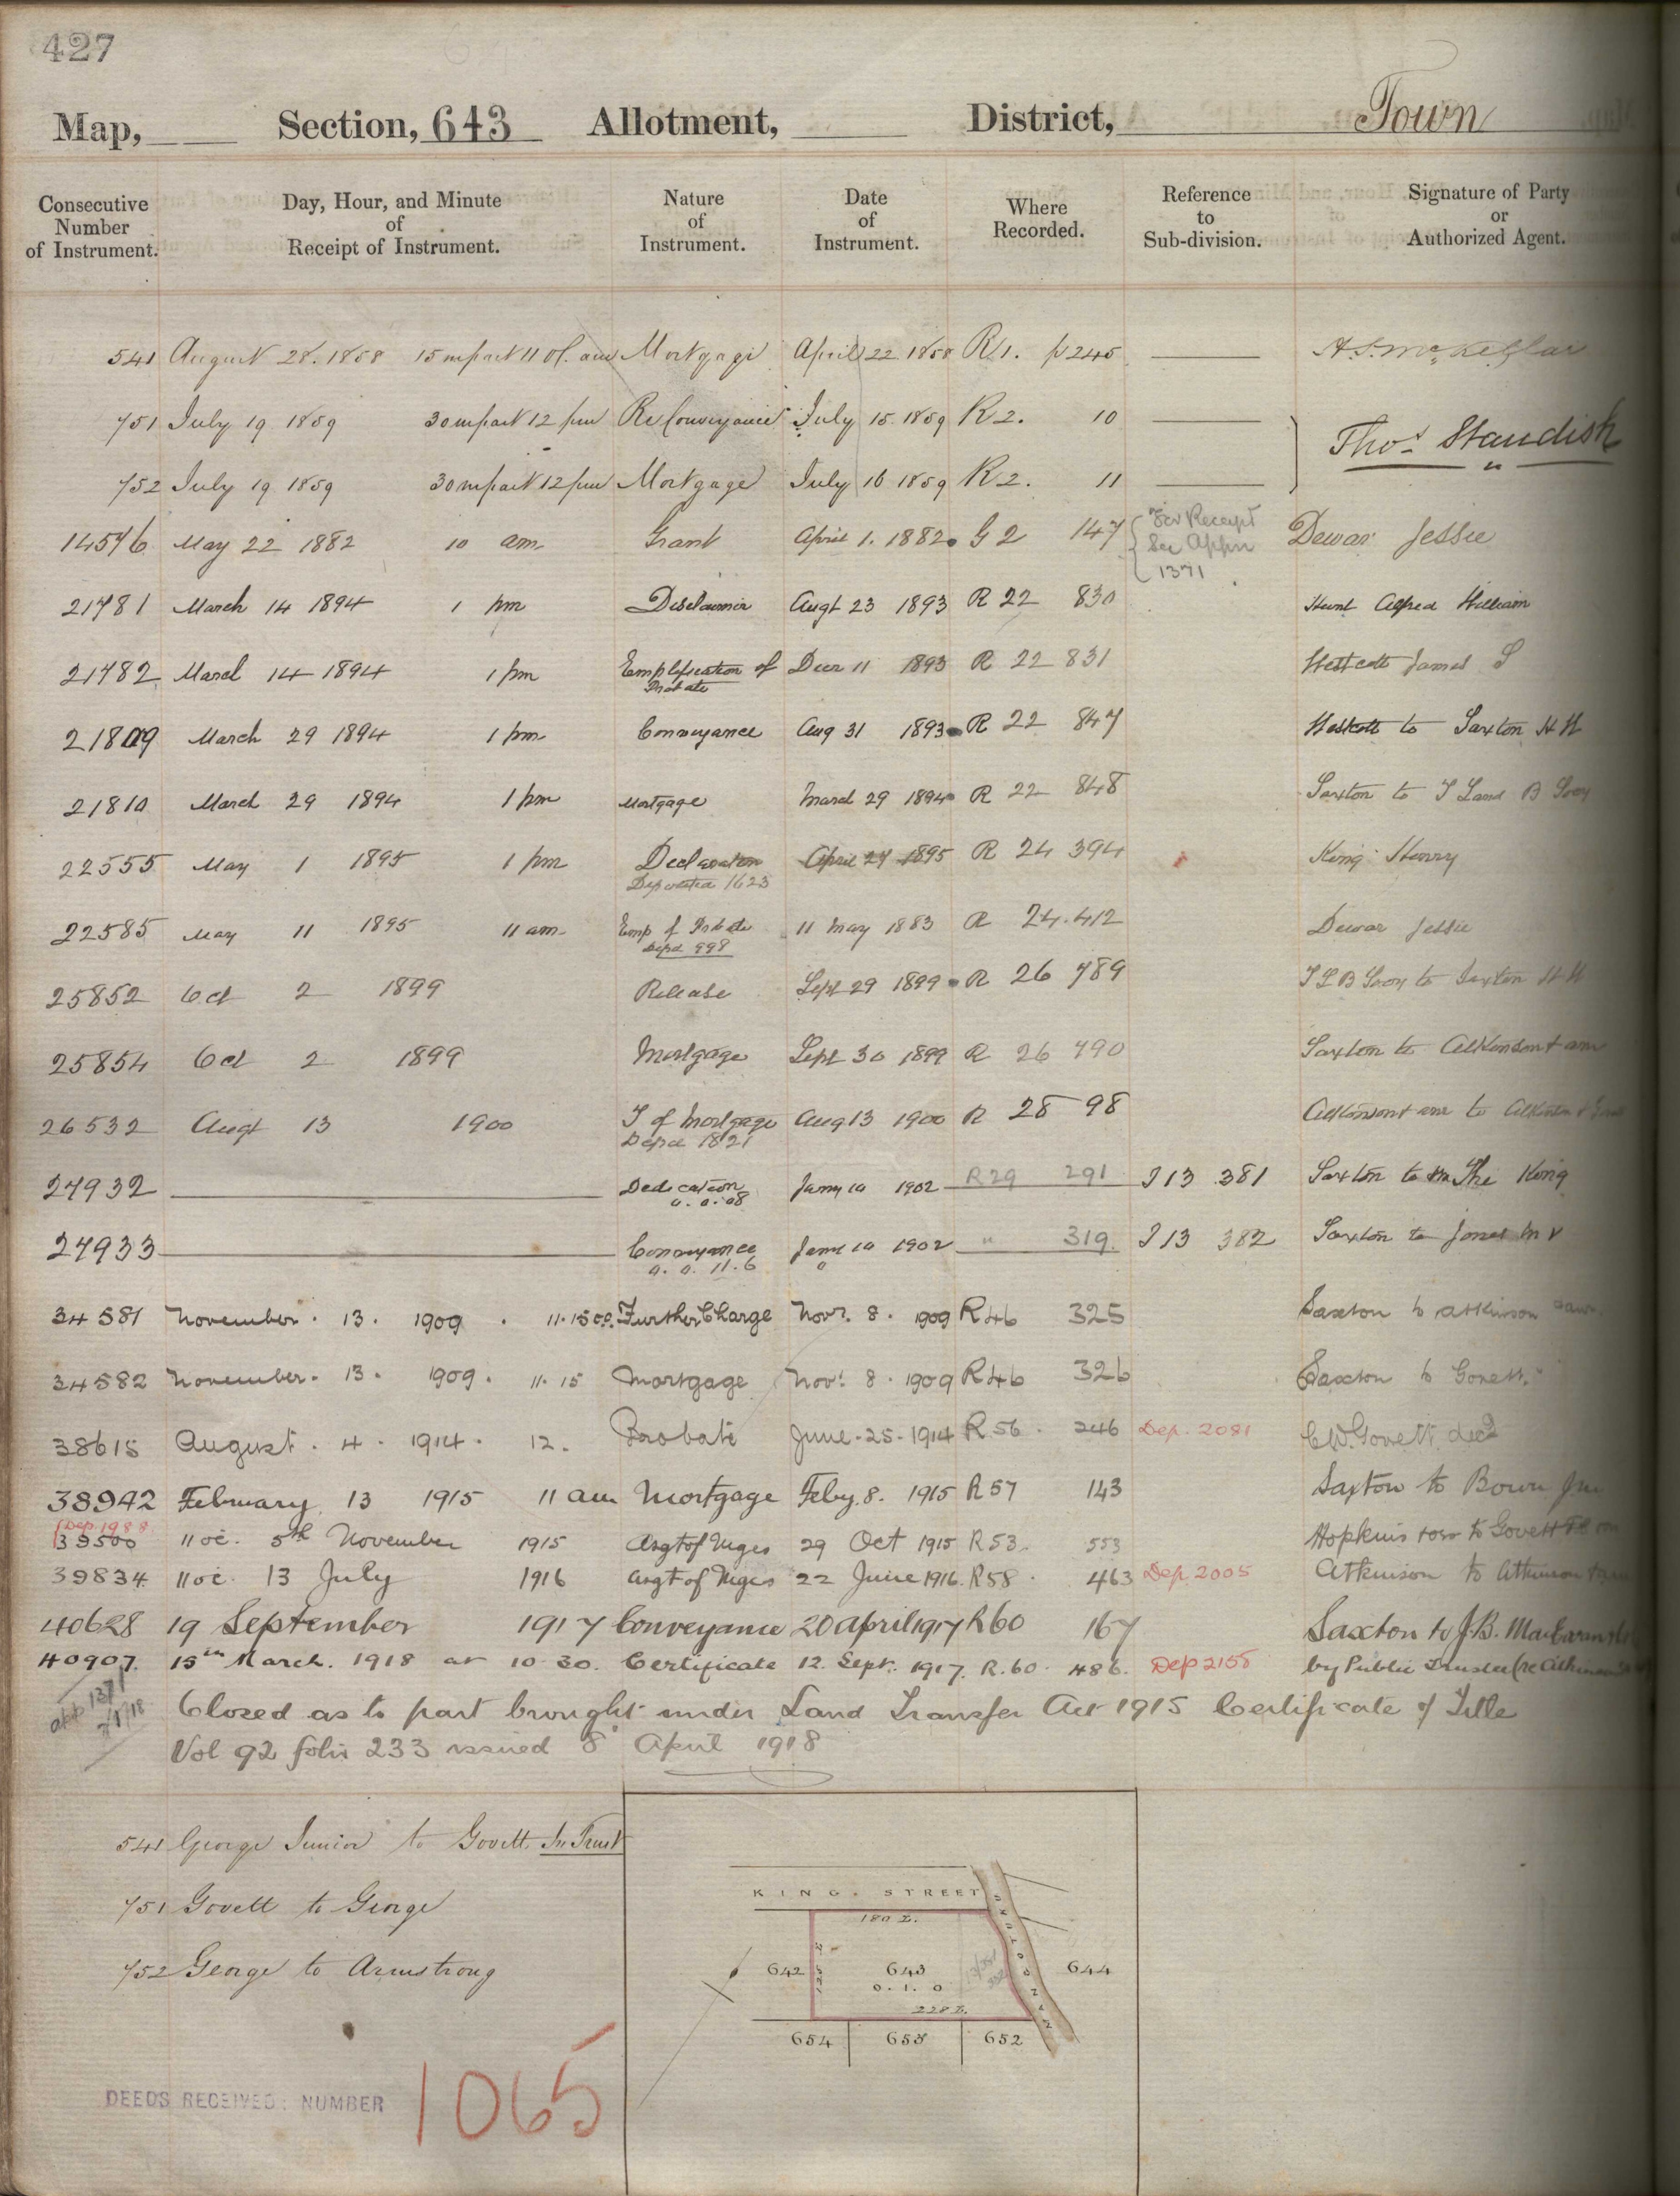 427
Map, Section, 643 Allotment, District, Town
Consecutive Number of Instrument. Day, Hour, and Minute of Receipt of Instrument. Nature of Instrument. Date of Instrument. Where Recorded. Reference to Sub-division. Signature of Party or Authorized Agent.
541 August 28. 1858 15 m past 11 oC. am Mortgage April 22 1858 R 1. p 245
751 July 19 1859 30 m past 12 pm Re Conveyance July 15 1859 R 2. 10 Thos Standish
752 July 19 1859 30 m past 12 pm Mortgage July 16 1859 R 2. 11 "
14576 May 22 1882 10 am Grant April 1. 1882 G 2 147 For Receipt See Appn 1371 Dewar Jessie
21781 March 14 1894 1 pm Disclaimer Augt 23 1893 R 22 830 Hunt Alfred William
21782 March 14 1894 1 pm Exemplification of Probate Decr 11 1893 R 22 831 James S
21809 March 29 1894 1 pm Conveyance Aug 31 1893 R 22 847 to Saxton H H
21810 March 29 1894 1 pm Mortgage March 29 1894 R 22 848 Saxton to
22555 May 1 1895 1 pm Declaration Deposited 1623 April 27 1895 R 24 394 King Henry
22585 May 11 1895 11 am Exmp of Probate Depd 998 11 May 1883 R 24. 412 Dewar Jessie
25852 Oct 2 1899 Release Sept 29 1899 R 26 789 to Saxton H H
25854 Oct 2 1899 Mortgage Sept 30 1899 R 26 790 Saxton to Atkinson & anr
26532 Augt 13 1900 T of Mortgage Depd 1821 Aug 13 1900 R 28 98 Atkinson & anr to Atkinson &
27932 Dedication 0.0.08 Jany 10 1902 R 29 291 I 13 381 Saxton to The King
27933 Conveyance 0.0.11.6 Jany 10 1902 " 319 I 13 382 Saxton to Jones
34581 November. 13. 1909. 11.15 Further Charge Novr. 8. 1909 R46 325 Saxton to Atkinson
34582 November. 13. 1909. 11.15 Mortgage Novr. 8. 1909 R46 326 Saxton to Govett
38615 August. 4. 1914. 12. Probate June. 25. 1914 R 56. 246 Dep. 2081 C W. Govett decd
38942 February 13 1915 11 am Mortgage Feby. 8. 1915 R 57 143 Saxton to Bown
Dep 1988
39500 11 oc. 5th November 1915 Asgt of Mges 29 Oct 1915 R 53. 553 Hopkins to Govett
39834 11 oc. 13 July 1916 Asgt of Mges 22 June 1916. R 58. 463 Dep 2005 Atkinson to Atkinson
40628 19 September 1917 Conveyance 20 April 1917 R60 167 Saxton to J. B.
40907. 15th March. 1918 at 10.30. Certificate 12. Sept. 1917. R. 60. 486. Dep 2155 by Public Trustee (re Atkinson
app 1371
Closed as to part brought under Land Transfer Act 1915 Certificate of Title
Vol 92 folio 233 issued 8 April 1918
541 George Junior to Govett In Trust
751 Govett to George
752 George to Armstrong
KING. STREET
180 L.
642 125 L 643 644
0. 1. 0
228 L.
MANGOTUKU
654 653 652
DEEDS RECEIVED: NUMBER 1065